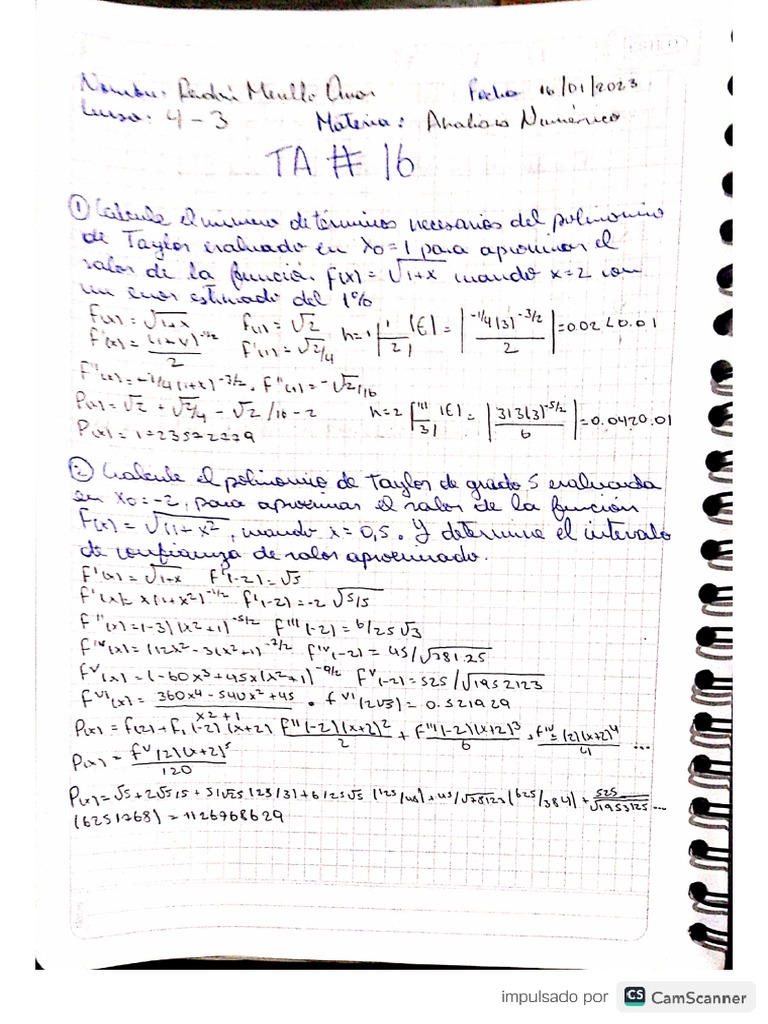 Fecha 16/01/2023
Curso: 4-3 Materia: Analisis Numérico
TA # 16
① Calcule el número de términos necesarios del polinomio
de Taylor evaluado en x0=1 para aproximar el
valor de la función f(x) = √1+x cuando x=2 con
un error estimado del 1%
f(x)= √1+x f(1)= √2
f'(x)= (1+x)^-1/2 / 2 f'(1)= √2/4 h=1 = |-1/4(3)^-3/2 / 2| =0.02<0.01
f''(x)= -1/4(1+x)^-3/2. f''(1)= -√2/16
P(x)= √2 + √2/4 - √2/16-2 h=2 = |313(3)^-5/2 / 6| =0.0420.01
② Calcule el polinomio de Taylor de grado 5 evaluada
en x0=-2, para aproximar el valor de la función
f(x)= √11+x², cuando x=0,5. Y determine el intervalo
de confianza de valor aproximado.
f'(x)= √1+x f'(-2)= √5
f'(x)= x(1+x²)^-1/2 f'(-2)=-2 √5/5
f'''(x)=(-3)(x²+1)^-5/2 f'''(-2)=6/25√3
f^IV(x)= (12x²-3(x²+1)^-7/2 f^IV(-2)= 45/√781.25
f^V(x)= (-60x³+45x(x²+1)^-9/2 f^V(-2)=525/√1952123
f^VI(x)= 360x4-540x²+45 / x2+1 . f^VI(2√3)= 0.521929
P(x)= f(2)+f,(-2)(x+2) f''(-2)(x+2)²/2 + f'''(-2)(x+2)³/6 + f^IV=(2)(x+2)⁴/4! ...
P(x)= f^V(2)(x+2)⁵ / 120
(6251768) = 1126768629